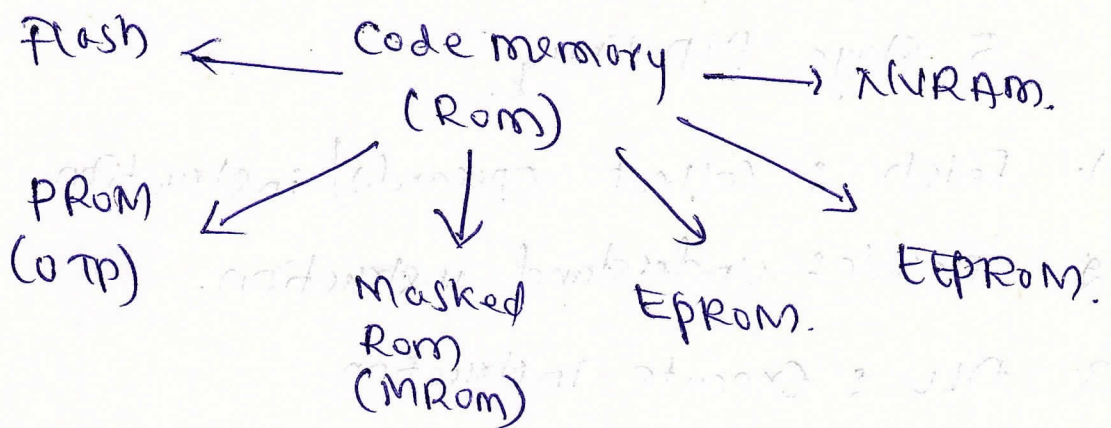 Flash
Code memory
(ROM)
NVRAM.
PROM
(OTP)
Masked
Rom
(MROM)
EPROM.
EEPROM.